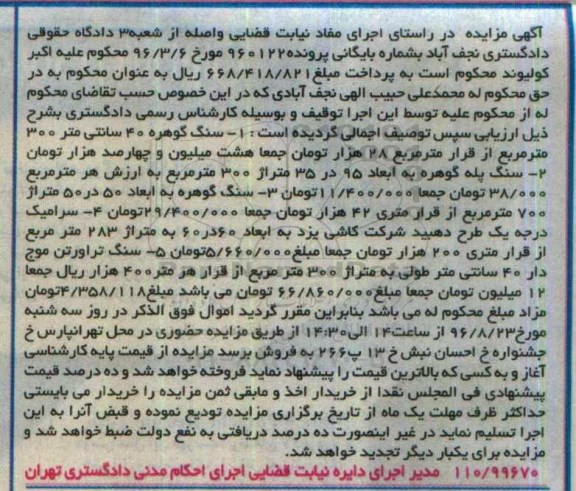 آگهی مزایده در راستای اجرای مفاد نیابت قضایی واصله از شعبه۳ دادگاه حقوقی
دادگستری نجف آباد بشماره بایگانی پرونده۹۶۰۱۲۲ مورخ ۹۶/۳/۶ محکوم علیه اکبر
کولیوند محکوم است به پرداخت مبلغ۶۶۸/۴۱۸/۸۲۱ ریال به عنوان محکوم به در
حق محکوم له محمدعلی حبیب الهی نجف آبادی که در این خصوص حسب تقاضای محکوم
له از محکوم علیه توسط این اجرا توقیف و بوسیله کارشناس رسمی دادگستری بشرح
ذیل ارزیابی سپس توصیف اجمالی گردیده است : ۱- سنگ گوهره ۴۰ سانتی متر ۳۰۰
مترمربع از قرار مترمربع ۲۸ هزار تومان جمعا هشت میلیون و چهارصد هزار تومان
۲- سنگ پله گوهره به ابعاد ۹۵ در ۳۵ متراژ ۳۰۰ مترمربع به ارزش هر مترمربع
۳۸/۰۰۰ تومان جمعا ۱۱/۴۰۰/۰۰۰تومان ۳- سنگ گوهره به ابعاد ۵۰ در۵۰ متراژ
۷۰۰ مترمربع از قرار متری ۴۲ هزار تومان جمعا ۲۹/۴۰۰/۰۰۰تومان ۴- سرامیک
درجه یک طرح دهبید شرکت کاشی یزد به ابعاد ۶۰در۶۰ به متراژ ۲۸۳ متر مربع
از قرار متری ۲۰۰ هزار تومان جمعا مبلغ۵/۶۶۰/۰۰۰تومان ۵- سنگ تراورتن موج
دار ۴۰ سانتی متر طولی به متراژ ۳۰۰ متر مربع از قرار هر متر۴۰۰ هزار ریال جمعا
۱۲ میلیون تومان جمعا مبلغ۶۶/۸۶۰/۰۰۰ تومان می باشد مبلغ۴/۳۵۸/۱۱۸تومان
مزاد مبلغ محکوم له می باشد بنابراین مقرر گردید اموال فوق الذکر در روز سه شنبه
مورخ۹۶/۸/۲۳ از ساعت۱۴ الی۱۴:۳۰ از طریق مزایده حضوری در محل تهرانپارس خ
جشنواره خ احسان نبش خ ۱۳ پ۲۶۶ به فروش برسد مزایده از قیمت پایه کارشناسی
آغاز و به کسی که بالاترین قیمت را پیشنهاد نماید فروخته خواهد شد و ده درصد قیمت
پیشنهادی فی المجلس نقدا از خریدار اخذ و مابقی ثمن مزایده را خریدار می بایستی
حداکثر ظرف مهلت یک ماه از تاریخ برگزاری مزایده تودیع نموده و قبض آنرا به این
اجرا تسلیم نماید در غیر اینصورت ده درصد دریافتی به نفع دولت ضبط خواهد شد و
مزایده برای یکبار دیگر تجدید خواهد شد.
۱۱۰/۹۹۶۷۰ مدیر اجرای دایره نیابت قضایی اجرای احکام مدنی دادگستری تهران